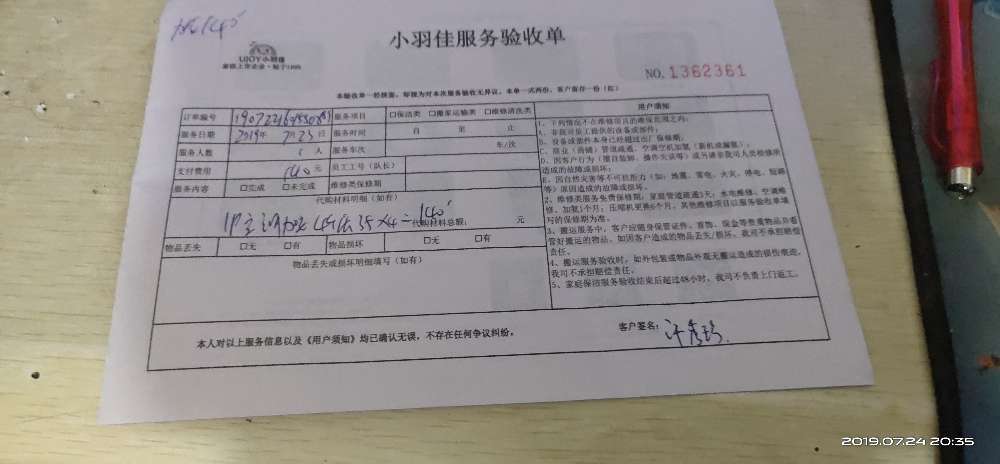 小羽佳服务验收单
UJOY小羽佳
家政上市企业·始于1999
NO.1362361
本验收单一经签署，即视为对本次服务验收无异议。本单一式两份，客户留存一份（红）
订单编号
服务项目
□保洁类 □搬家运输类 □维修清洗类
服务日期 2019年 7月23日
服务时间 自 至 止
服务人数 1 人
服务车次 车/次
支付费用 140 元
员工工号（队长）
服务内容 □完成 □未完成
维修类保修期
代购材料明细（如有）
35×4=140
代购材料总额： 元
物品丢失 □无 □有
物品损坏 □无 □有
物品丢失或损坏明细填写（如有）
用户须知
1、下列情况不在维修项目的维保范围之内：
A、非我司员工提供的设备或部件；
B、设备或部件本身已经超过出厂保修期；
C、商业（商铺）管道疏通、空调空机加氟（新机或漏氟）；
D、因客户行为（擅自装卸、操作失误等）或另请非我司人员检修所
造成的故障或损坏；
E、因自然灾害等不可抗拒力（如：地震、雷电、火灾、停电、短路
等）原因造成的故障或损坏。
2、维修类服务免费保修期：家庭管道疏通3天；水电维修、空调维
修、加氟1个月，压缩机更换6个月，其他维修项目以服务验收单填
写的保修期为准。
3、搬运服务中，客户应随身保管证件、首饰、现金等贵重物品并看
管好搬运的物品，如因客户造成的物品丢失/损坏，我司可不承担赔偿
责任。
4、搬运服务验收时，如外包装或物品外观无搬运造成的损伤痕迹，
我司可不承担赔偿责任。
5、家庭保洁服务验收结束后超过48小时，我司可不负责上门返工。
本人对以上服务信息以及《用户须知》均已确认无误，不存在任何争议纠纷。
客户签名：
2019.07.24 20:35